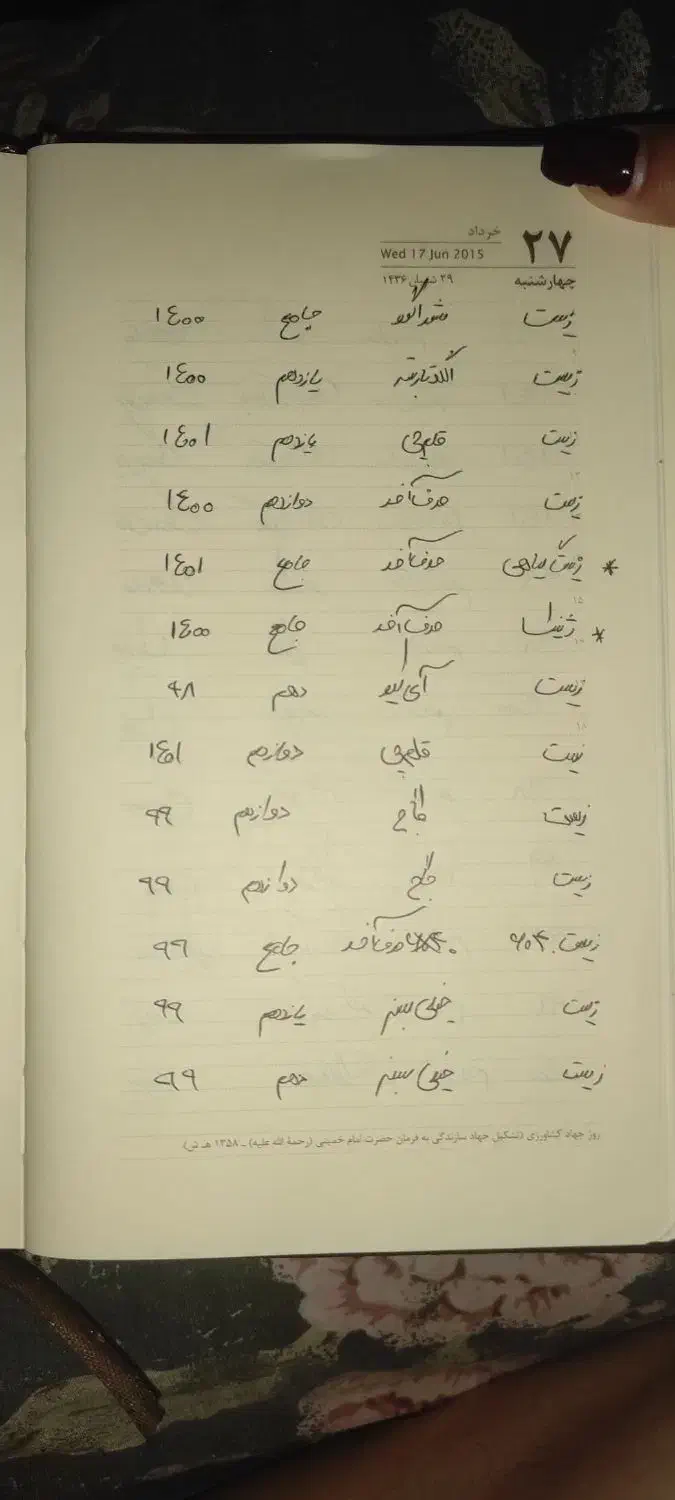 خرداد
۲۷
Wed 17 Jun 2015
چهارشنبه
۲۹ شعبان ۱۴۳۶
زیست جامع ۱۴۰۰
زیست الگو یازدهم ۱۴۰۰
زیست قلم‌چی یازدهم ۱۴۰۱
زیست حرف آخر دوازدهم ۱۴۰۰
* زیست گیاهی حرف آخر جامع ۱۴۰۱
* ژنتیک حرف آخر جامع ۱۴۰۰
زیست آی کیو دهم ۹۸
زیست قلم‌چی دوازدهم ۱۴۰۱
زیست گاج دوازدهم ۹۹
زیست گاج دوازدهم ۹۹
زیست حرف آخر جامع ۹۹
زیست خیلی سبز یازدهم ۹۹
زیست خیلی سبز دهم ۹۹
روز جهاد کشاورزی (تشکیل جهاد سازندگی به فرمان حضرت امام خمینی (رحمة الله علیه) ـ ۱۳۵۸ هـ ش)